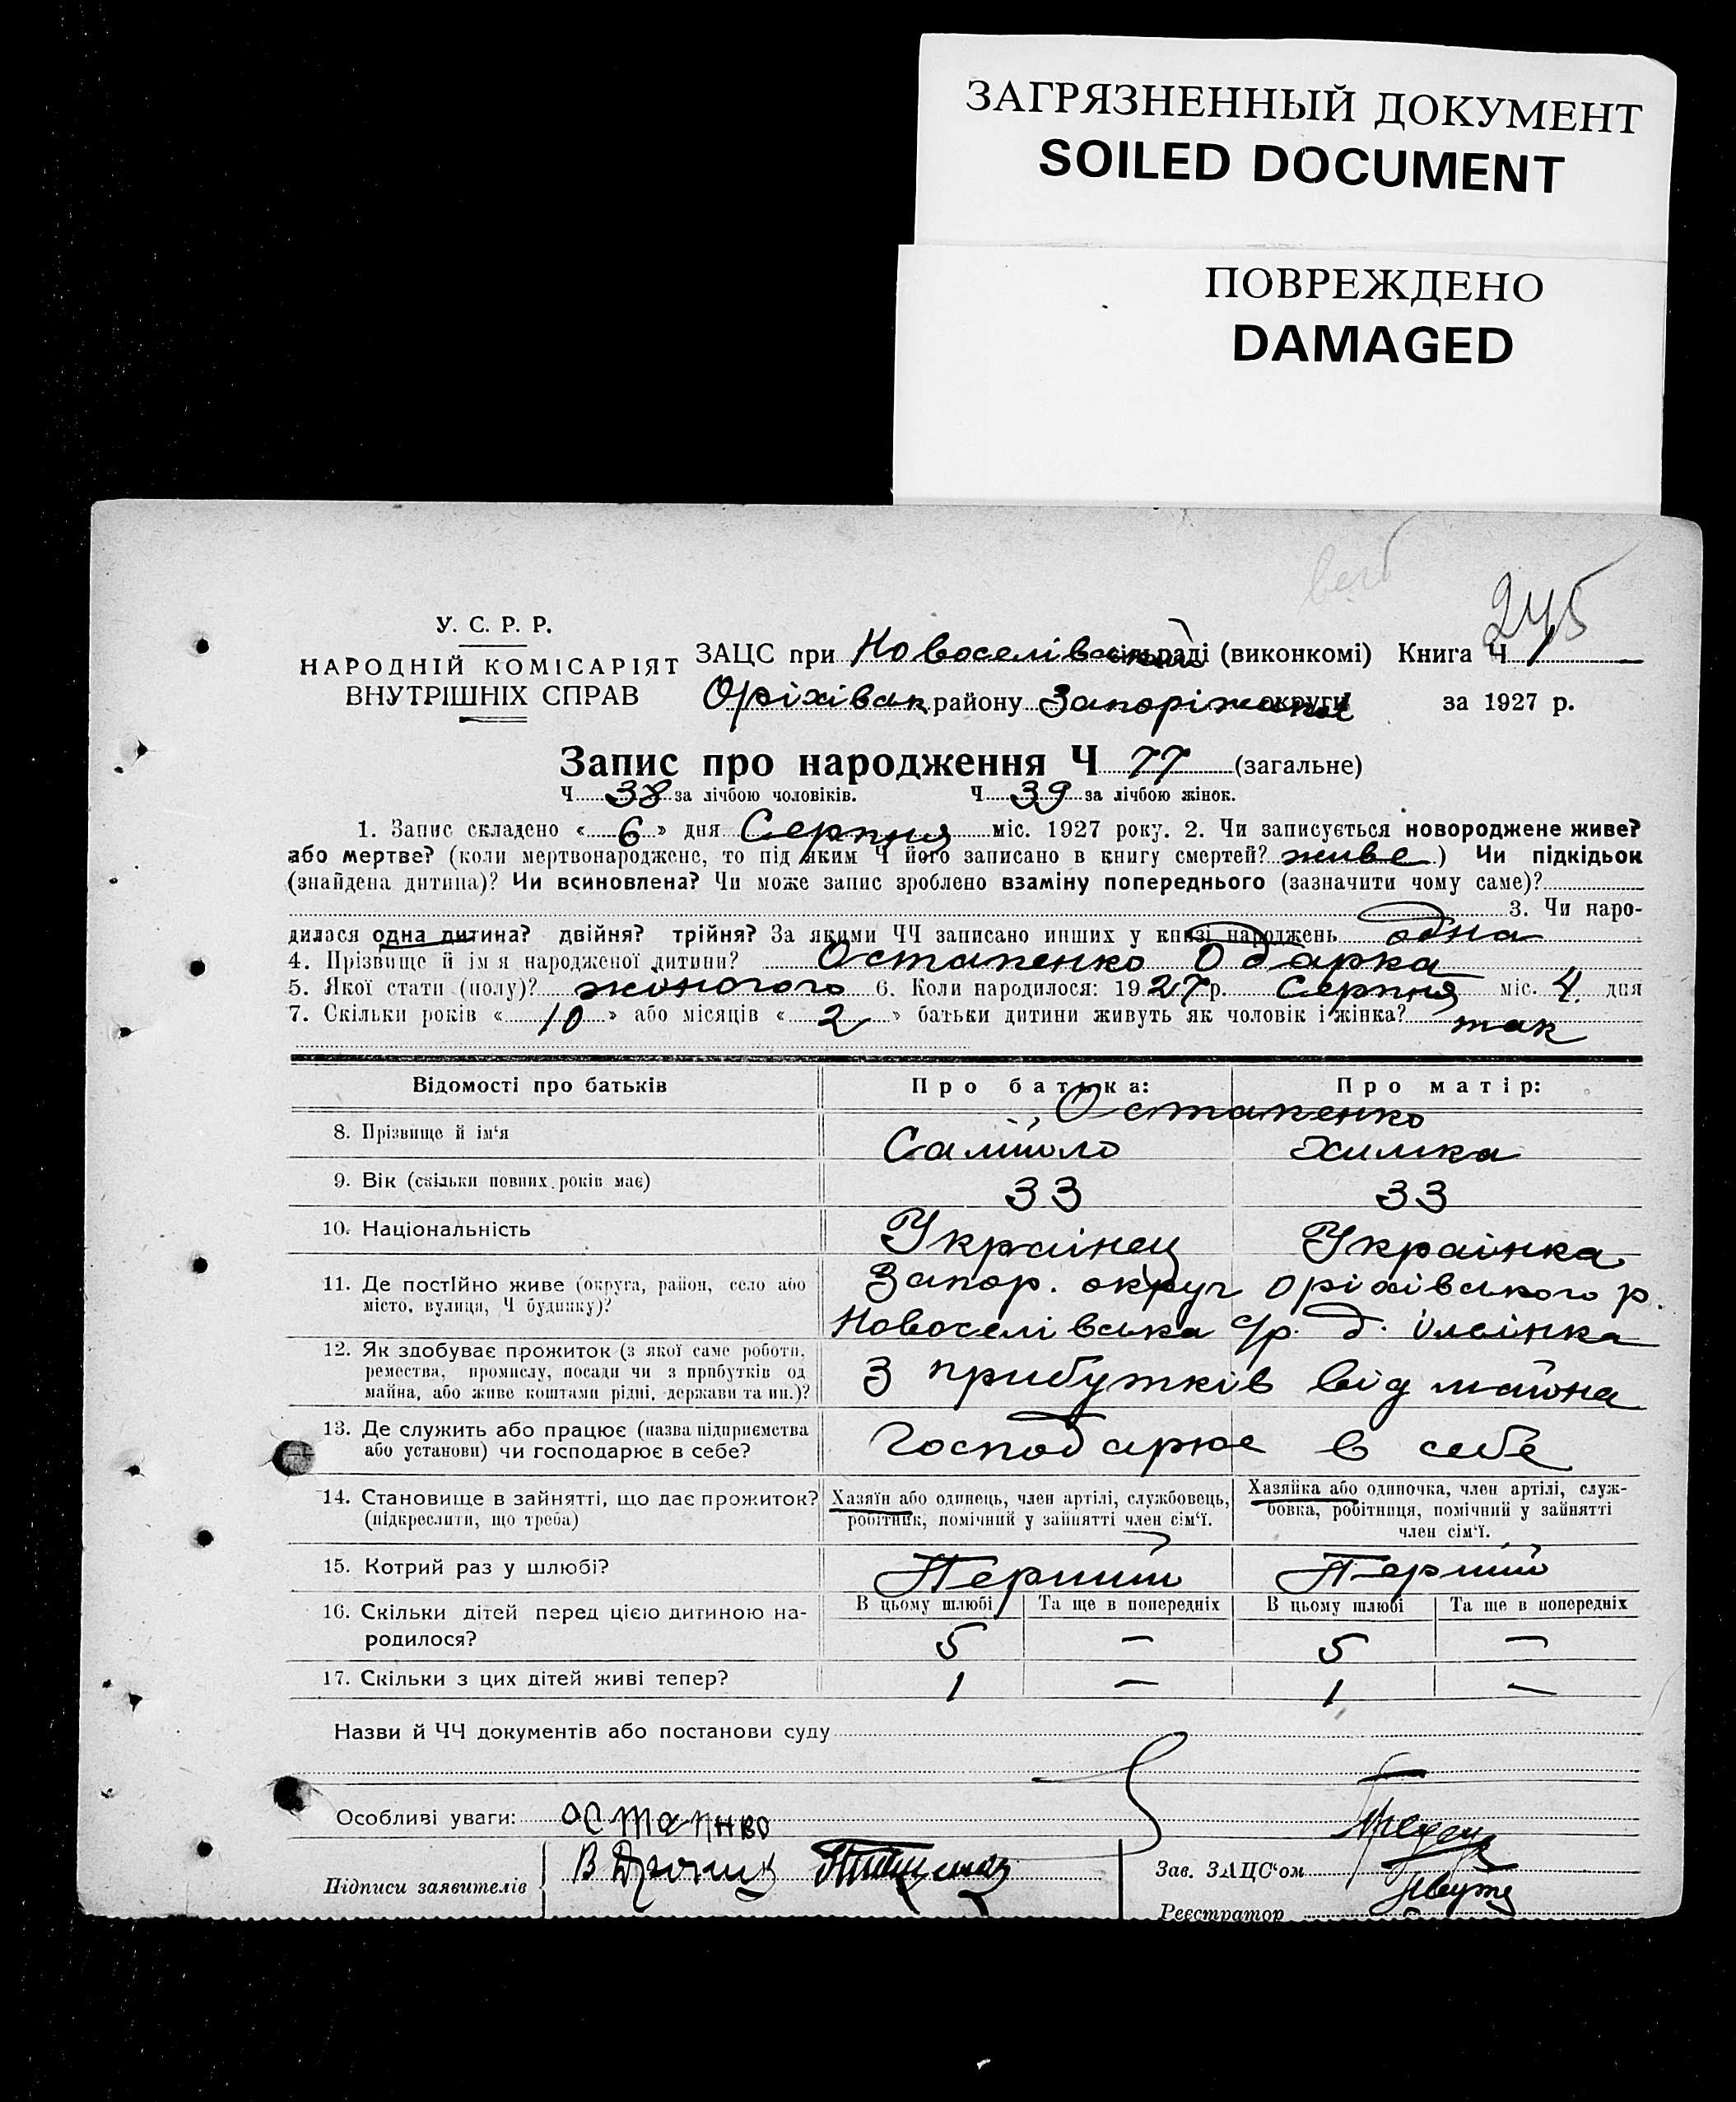 ЗАГРЯЗНЕННЫЙ ДОКУМЕНТ
SOILED DOCUMENT
ПОВРЕЖДЕНО
DAMAGED
245
У. С. Р. Р.
НАРОДНІЙ КОМІСАРІЯТ
ВНУТРІШНІХ СПРАВ
ЗАЦС при Новоселівській сільраді (виконкомі) Книга Ч 1
Оріхівськ району Запоріжської округи за 1927 р.
Запис про народження Ч 77 (загальне)
Ч 38 за лічбою чоловіків. Ч 39 за лічбою жінок.
1. Запис складено « 6 » дня Серпня міс. 1927 року. 2. Чи записується новороджене живе?
або мертве? (коли мертвонароджене, то під яким Ч його записано в книгу смертей? живе ) Чи підкідьок
(знайдена дитина)? Чи всиновлена? Чи може запис зроблено взаміну попереднього (зазначити чому саме)?
3. Чи наро-
дилася одна дитина? двійня? трійня? За якими ЧЧ записано инших у книзі народжень одна
4. Прізвище й ім'я народженої дитини? Остапенко Одарка
5. Якої стати (полу)? жіночого 6. Коли народилося: 1927 р. Серпня міс. 4. дня
7. Скільки років « 10 » або місяців « 2 » батьки дитини живуть як чоловік і жінка? так
Відомості про батьків Про батька: Про матір:
Остапенко
8. Прізвище й ім‘я Самійло Химка
9. Вік (скільки повних років має) 33 33
10. Національність Українец Українка
11. Де постійно живе (округа, район, село або Запор. округ Оріхівського р.
місто, вулиця, Ч будинку)? Новоселівська с/р. д.
12. Як здобуває прожиток (з якої саме роботи,
ремества, промислу, посади чи з прибутків од З прибутків від майна
майна, або живе коштами рідні, держави та ин.)?
13. Де служить або працює (назва підприємства Господарює в себе
або установи) чи господарює в себе?
14. Становище в зайнятті, що дає прожиток? Хазяїн або одинець, член артілі, службовець, Хазяйка або одиночка, член артілі, служ-
(підкреслити, що треба) робітник, помічний у зайнятті член сім‘ї. бовка, робітниця, помічний у зайнятті
член сім‘ї.
15. Котрий раз у шлюбі? Перший Перший
16. Скільки дітей перед цією дитиною на- В цьому шлюбі Та ще в попередніх В цьому шлюбі Та ще в попередніх
родилося? 5 — 5 —
17. Скільки з цих дітей живі тепер? 1 — 1 —
Назви й ЧЧ документів або постанови суду
Особливі уваги: Остапнко
Підписи заявителів
Зав. ЗАЦС‘ом
Реєстратор